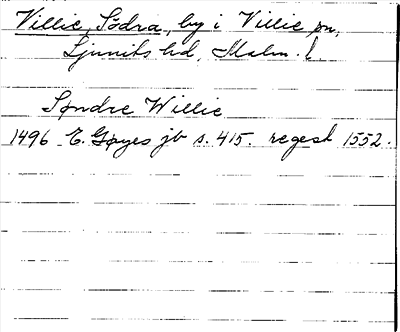 Villie, Södra, by i Villie sn,
Ljunits hd, Malm. l
Søndre Willie
1496 E. Gøyes jb s. 415. regest 1552.